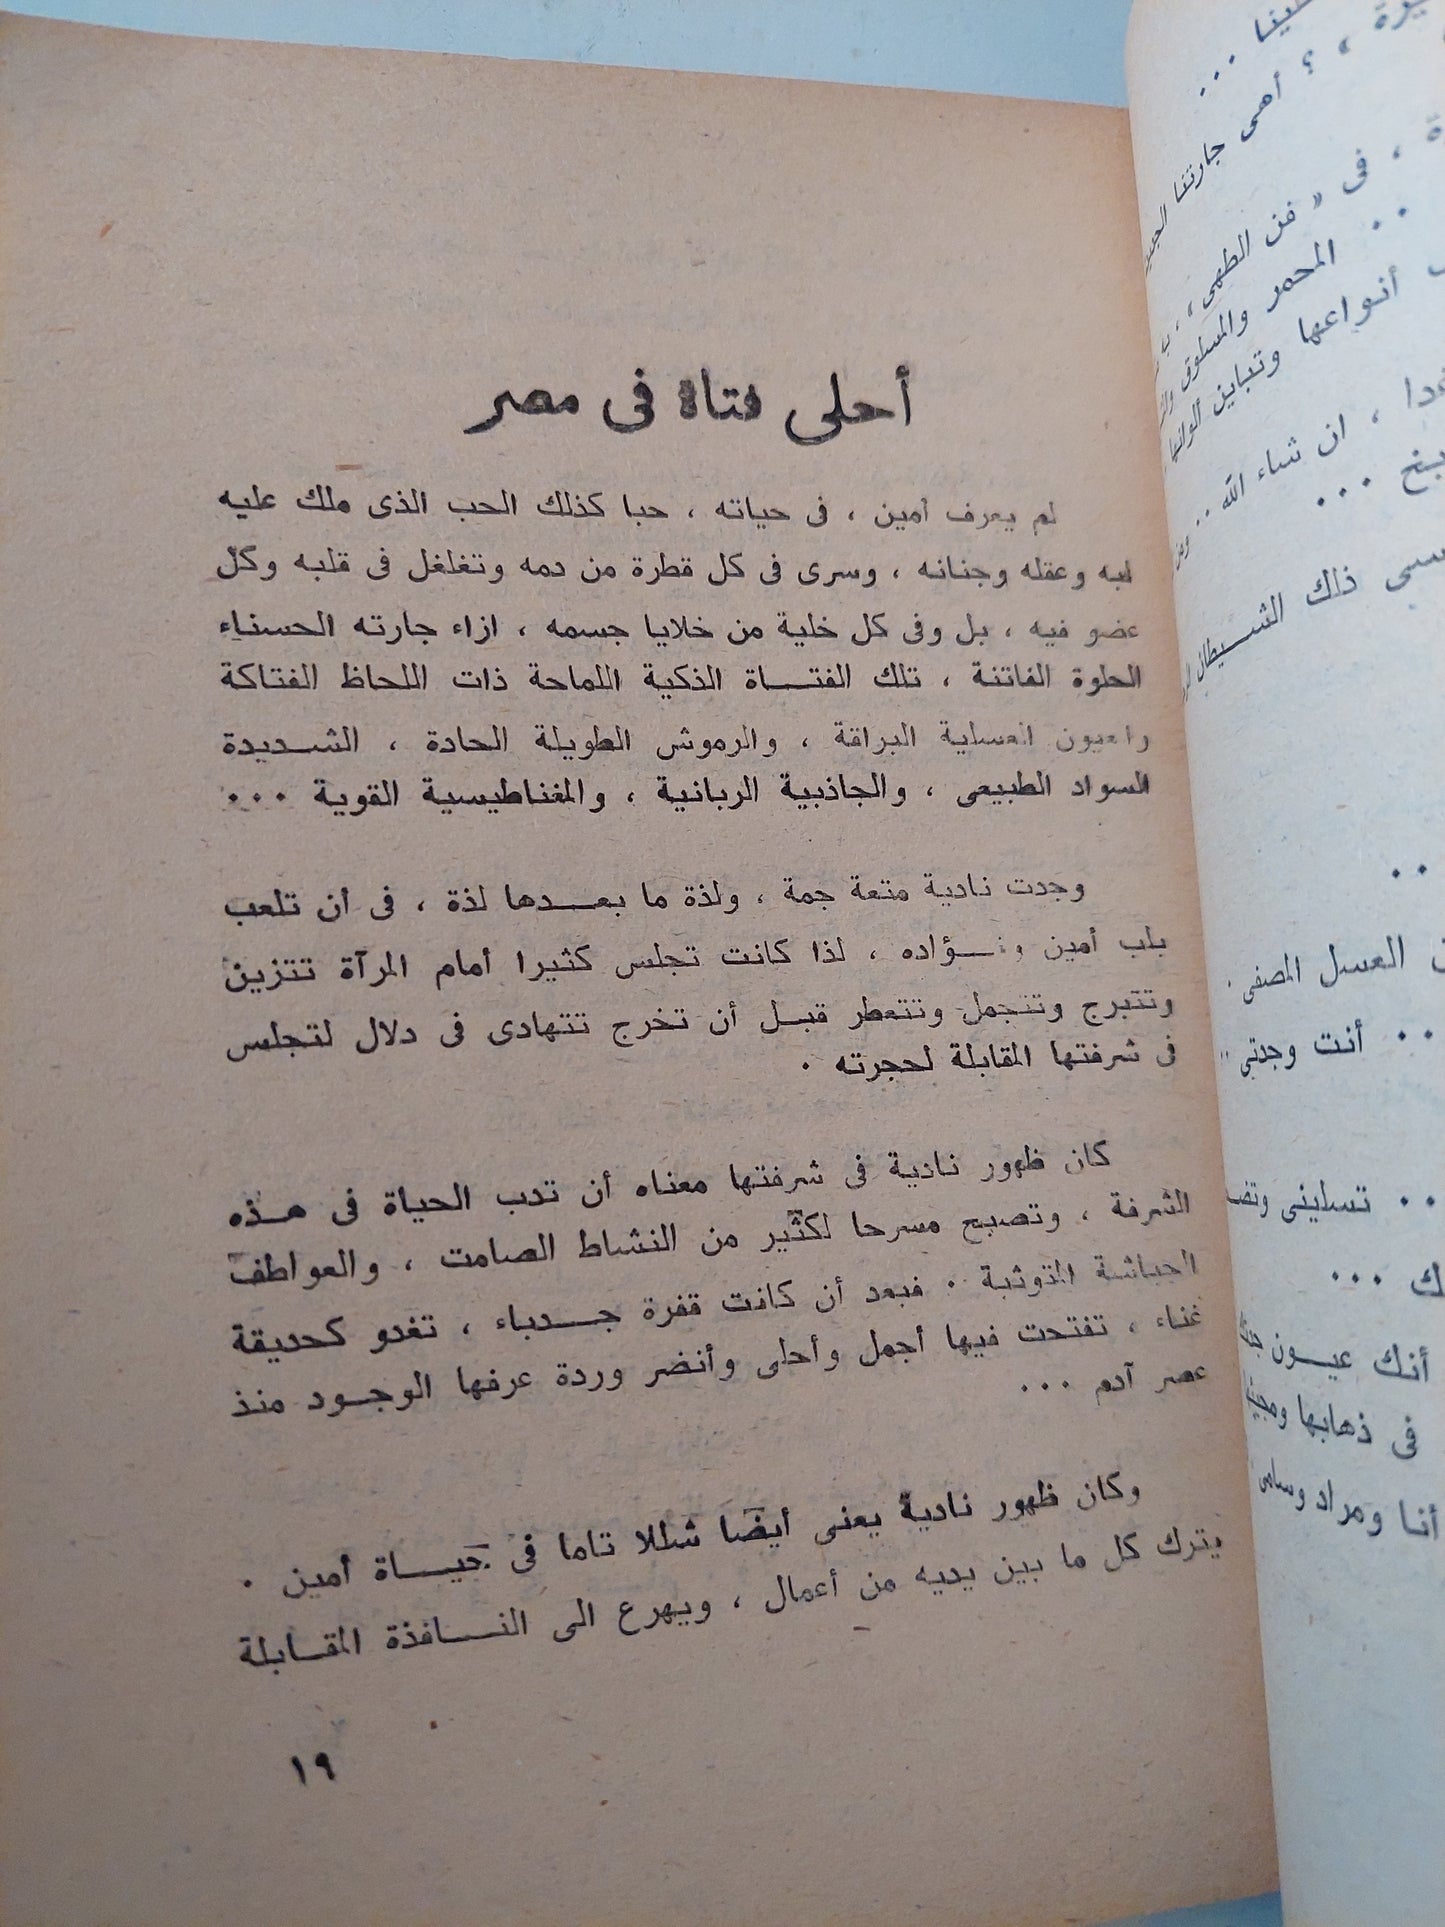 أحلى فتاة فى مصر
لم يعرف أمين ، فى حياته ، حبا كذلك الحب الذى ملك عليه
لبه وعقله وجنانه ، وسرى فى كل قطرة من دمه وتغلغل فى قلبه وكل
عضو فيه ، بل وفى كل خلية من خلايا جسمه ، ازاء جارته الحسناء
الحلوة الفاتنة ، تلك الفتــاة الذكية اللماحة ذات اللحاظ الفتاكة
والعيون العسلية البراقة ، والرموش الطويلة الحادة ، الشــديدة
السواد الطبيعى ، والجاذبية الربانية ، والمغناطيسية القوية ...
وجدت نادية متعة جمة ، ولذة ما بعــدها لذة ، فى أن تلعب
بلب أمين وفــؤاده ، لذا كانت تجلس كثيرا أمام المرآة تتزين
وتتبرج وتتجمل وتتعطر قبــل أن تخرج تتهادى فى دلال لتجلس
فى شرفتها المقابلة لحجرته .
كان ظهور نادية فى شرفتها معناه أن تدب الحياة فى هــذه
الشرفة ، وتصبح مسرحا لكثير من النشاط الصامت ، والعواطف
الجياشة المتوثبة . فبعد أن كانت قفرة جــدباء ، تغدو كحديقة
غناء ، تفتحت فيها أجمل وأحلى وأنضر وردة عرفها الوجــود منذ
عصر آدم ...
وكان ظهور نادية يعنى أيضا شللا تاما فى حيــاة أمين .
يترك كل ما بين يديه من أعمال ، ويهرع الى النــافذة المقــابلة
١٩
؟ أهى جارتنا
، فى « فن الطهى » ،
.. المحمر والمسلوق
أنواعها وتباين ألوانها
، ان شاء الله ..
ذلك الشــيطان
العسل المصفى .
.. أنت وجدتى ..
.. تسلينى
أنك عيــون
فى ذهابها
أنا ومراد وسامى